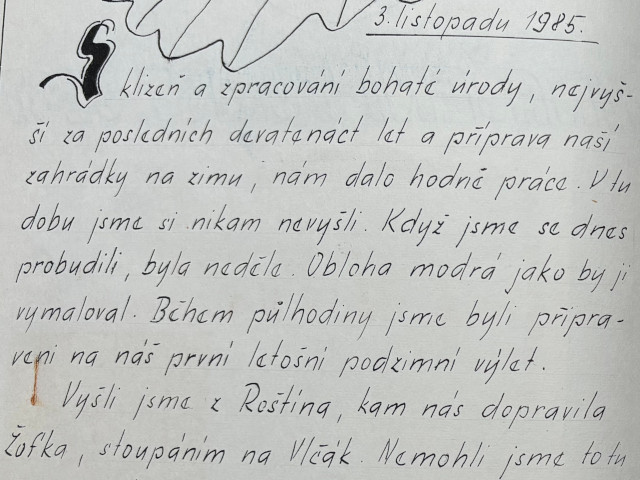 3. listopadu 1985.
Sklizeň a zpracování bohaté úrody, nejvyš-
ší za posledních devatenáct let a příprava naší
zahrádky na zimu, nám dalo hodně práce. V tu
dobu jsme si nikam nevyšli. Když jsme se dnes
probudili, byla neděle. Obloha modrá jako by ji
vymaloval. Během půlhodiny jsme byli připra-
veni na náš první letošní podzimní výlet.
Vyšli jsme z Roštína, kam nás dopravila
Žofka, stoupáním na Vlčák. Nemohli jsme to tu